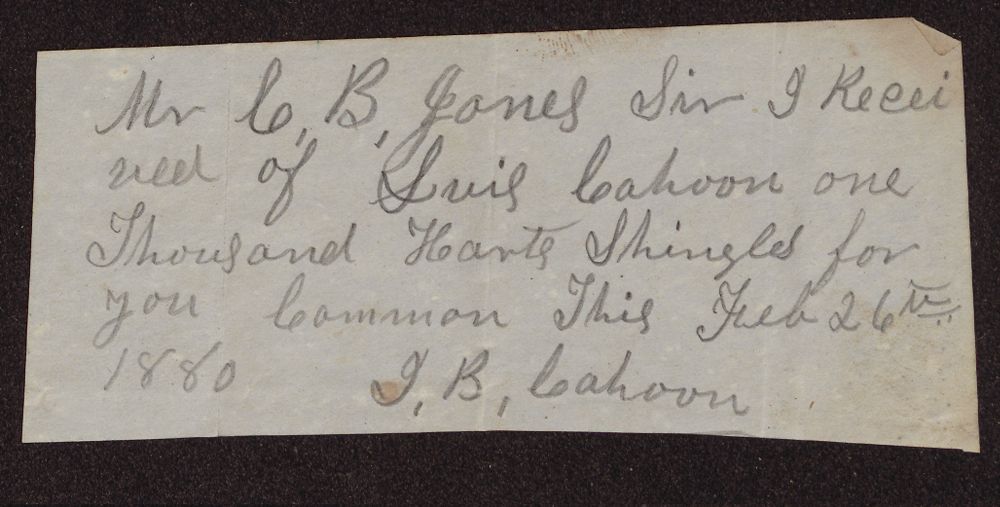 Mr C, B, Jones Sir I Recei
ved of Luis Cahoon one
Thousand Harts Shingles for
you Common This Feb 26th
1880 I, B, Cahoon